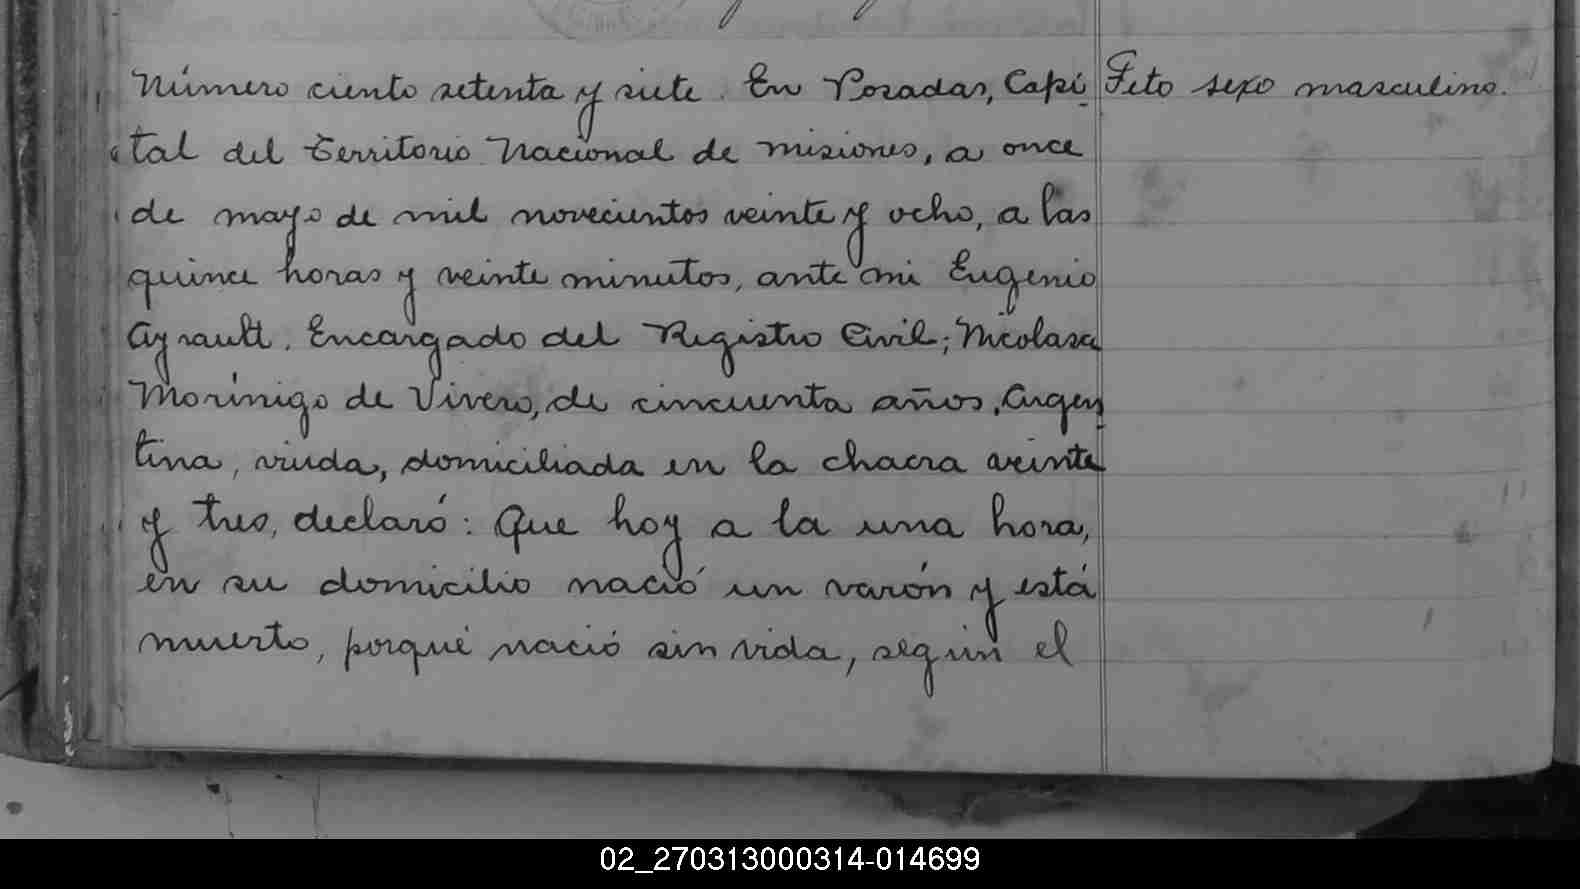 Número ciento setenta y siete. En Posadas, Capi
Feto sexo masculino.
tal del Territorio Nacional de misiones, a once
de mayo de mil novecientos veinte y ocho, a las
quince horas y veinte minutos, ante mi Eugenio
Ayrault. Encargado del Registro Civil; Nicolasa
Morínigo de Vivero, de cincuenta años, Argen
tina, viuda, domiciliada en la chacra veinte
y tres, declaró: Que hoy a la una hora,
en su domicilio nació un varón y está
muerto, porqué nació sin vida, según el
02_270313000314-014699